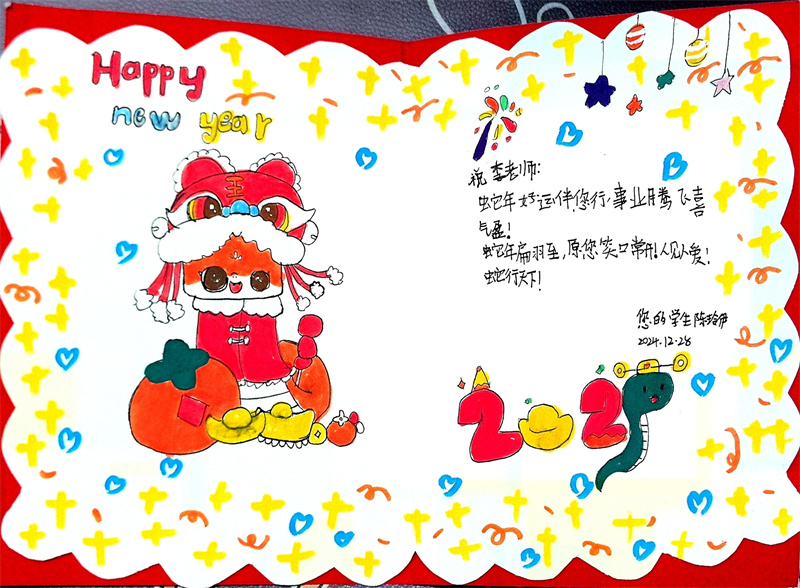 Happy
new year
祝 李老师:
蛇年好运伴您行,事业腾飞喜
气盈!
蛇年扁羽至,原您笑口常开!人见人爱!
蛇行天下!
您的学生陈玲伊
2024.12.28
202